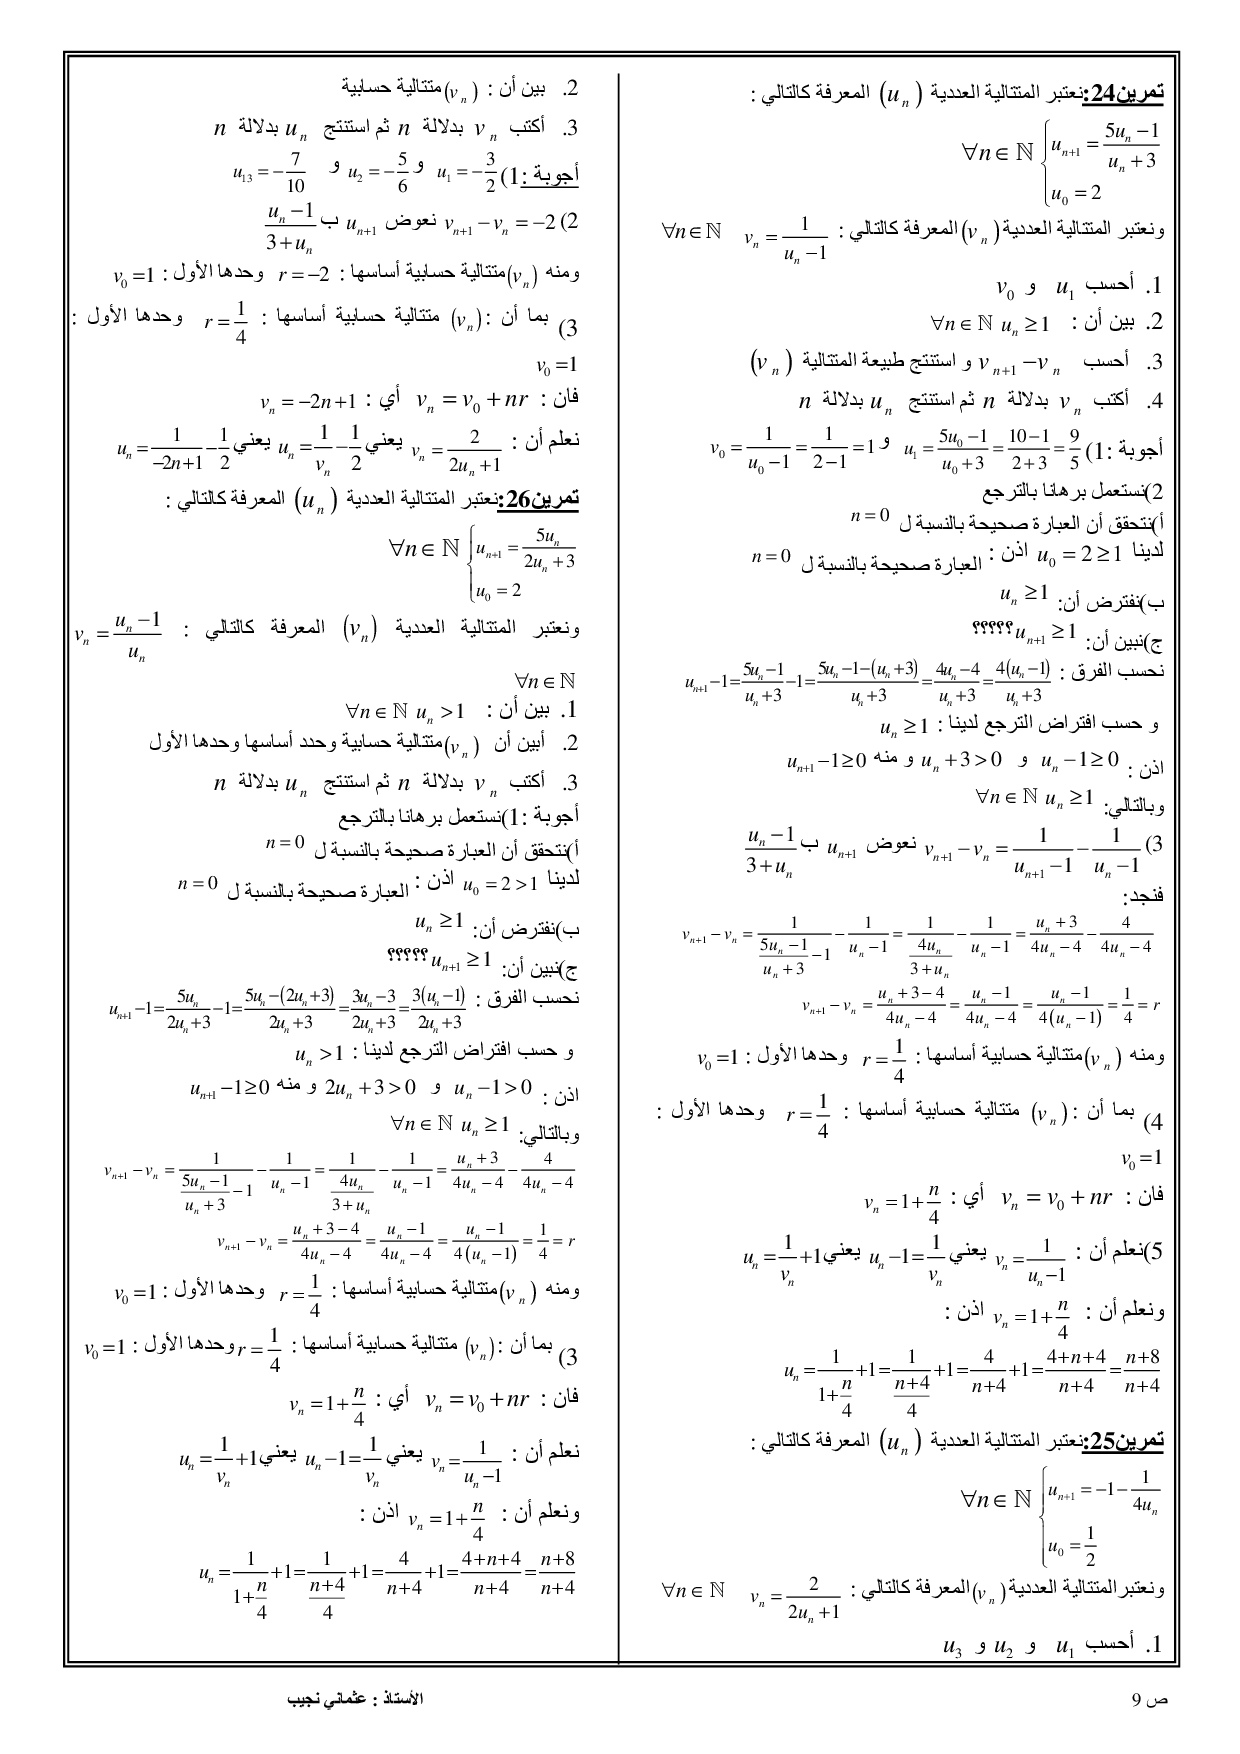 تمرين24:نعتبر المتتالية العددية (u_n) المعرفة كالتالي :
∀n∈ℕ { u_{n+1} = (5u_n − 1)/(u_n + 3)
u_0 = 2
ونعتبر المتتالية العددية (v_n) المعرفة كالتالي : v_n = 1/(u_n − 1) ∀n∈ℕ
1. أحسب u_1 و v_0
2. بين أن : ∀n∈ℕ u_n ≥ 1
3. أحسب v_{n+1} − v_n و استنتج طبيعة المتتالية (v_n)
4. أكتب v_n بدلالة n ثم استنتج u_n بدلالة n
أجوبة :1) u_1 = (5u_0 − 1)/(u_0 + 3) = (10−1)/(2+3) = 9/5 و v_0 = 1/(u_0 − 1) = 1/(2−1) = 1
2)نستعمل برهانا بالترجع
أ)نتحقق أن العبارة صحيحة بالنسبة ل n = 0
لدينا u_0 = 2 ≥ 1 اذن : العبارة صحيحة بالنسبة ل n = 0
ب)نفترض أن: u_n ≥ 1
ج)نبين أن: u_{n+1} ≥ 1 ؟؟؟؟؟
نحسب الفرق : u_{n+1} − 1 = (5u_n − 1)/(u_n + 3) − 1 = (5u_n − 1 − (u_n + 3))/(u_n + 3) = (4u_n − 4)/(u_n + 3) = 4(u_n − 1)/(u_n + 3)
و حسب افتراض الترجع لدينا : u_n ≥ 1
اذن : u_n − 1 ≥ 0 و u_n + 3 > 0 و منه u_{n+1} − 1 ≥ 0
وبالتالي: ∀n∈ℕ u_n ≥ 1
3) v_{n+1} − v_n = 1/(u_{n+1} − 1) − 1/(u_n − 1) نعوض u_{n+1} ب (u_n − 1)/(3 + u_n)
فنجد:
v_{n+1} − v_n = 1/((5u_n − 1)/(u_n + 3) − 1) − 1/(u_n − 1) = 1/(4u_n/(3 + u_n)) − 1/(u_n − 1) = (u_n + 3)/(4u_n − 4) − 4/(4u_n − 4)
v_{n+1} − v_n = (u_n + 3 − 4)/(4u_n − 4) = (u_n − 1)/(4u_n − 4) = (u_n − 1)/(4(u_n − 1)) = 1/4 = r
ومنه (v_n) متتالية حسابية أساسها : r = 1/4 وحدها الأول : v_0 = 1
4) بما أن : (v_n) متتالية حسابية أساسها : r = 1/4 وحدها الأول :
v_0 = 1
فان : v_n = v_0 + nr أي : v_n = 1 + n/4
5)نعلم أن : v_n = 1/(u_n − 1) يعني u_n − 1 = 1/v_n يعني u_n = 1/v_n + 1
ونعلم أن : v_n = 1 + n/4 اذن :
u_n = 1/(1 + n/4) + 1 = 1/((n+4)/4) + 1 = 4/(n+4) + 1 = (4+n+4)/(n+4) = (n+8)/(n+4)
تمرين25:نعتبر المتتالية العددية (u_n) المعرفة كالتالي :
∀n∈ℕ { u_{n+1} = −1 − 1/(4u_n)
u_0 = 1/2
ونعتبرالمتتالية العددية (v_n) المعرفة كالتالي : v_n = 2/(2u_n + 1) ∀n∈ℕ
1. أحسب u_1 و u_2 و u_3
2. بين أن : (v_n) متتالية حسابية
3. أكتب v_n بدلالة n ثم استنتج u_n بدلالة n
أجوبة :1) u_1 = −3/2 و u_2 = −5/6 و u_13 = −7/10
2) v_{n+1} − v_n = −2 نعوض u_{n+1} ب (u_n − 1)/(3 + u_n)
ومنه (v_n) متتالية حسابية أساسها : r = −2 وحدها الأول : v_0 = 1
3) بما أن : (v_n) متتالية حسابية أساسها : r = 1/4 وحدها الأول :
v_0 = 1
فان : v_n = v_0 + nr أي : v_n = −2n + 1
نعلم أن : v_n = 2/(2u_n + 1) يعني u_n = 1/v_n − 1/2 يعني u_n = 1/(−2n+1) − 1/2
تمرين26:نعتبر المتتالية العددية (u_n) المعرفة كالتالي :
∀n∈ℕ { u_{n+1} = 5u_n/(2u_n + 3)
u_0 = 2
ونعتبر المتتالية العددية (v_n) المعرفة كالتالي : v_n = (u_n − 1)/u_n
∀n∈ℕ
1. بين أن : ∀n∈ℕ u_n > 1
2. أبين أن (v_n) متتالية حسابية وحدد أساسها وحدها الأول
3. أكتب v_n بدلالة n ثم استنتج u_n بدلالة n
أجوبة :1)نستعمل برهانا بالترجع
أ)نتحقق أن العبارة صحيحة بالنسبة ل n = 0
لدينا u_0 = 2 > 1 اذن : العبارة صحيحة بالنسبة ل n = 0
ب)نفترض أن: u_n ≥ 1
ج)نبين أن: u_{n+1} ≥ 1 ؟؟؟؟؟
نحسب الفرق : u_{n+1} − 1 = 5u_n/(2u_n + 3) − 1 = (5u_n − (2u_n + 3))/(2u_n + 3) = (3u_n − 3)/(2u_n + 3) = 3(u_n − 1)/(2u_n + 3)
و حسب افتراض الترجع لدينا : u_n > 1
اذن : u_n − 1 > 0 و 2u_n + 3 > 0 و منه u_{n+1} − 1 ≥ 0
وبالتالي: ∀n∈ℕ u_n ≥ 1
v_{n+1} − v_n = 1/((5u_n − 1)/(u_n + 3) − 1) − 1/(u_n − 1) = 1/(4u_n/(3 + u_n)) − 1/(u_n − 1) = (u_n + 3)/(4u_n − 4) − 4/(4u_n − 4)
v_{n+1} − v_n = (u_n + 3 − 4)/(4u_n − 4) = (u_n − 1)/(4u_n − 4) = (u_n − 1)/(4(u_n − 1)) = 1/4 = r
ومنه (v_n) متتالية حسابية أساسها : r = 1/4 وحدها الأول : v_0 = 1
3) بما أن : (v_n) متتالية حسابية أساسها : r = 1/4 وحدها الأول : v_0 = 1
فان : v_n = v_0 + nr أي : v_n = 1 + n/4
نعلم أن : v_n = 1/(u_n − 1) يعني u_n − 1 = 1/v_n يعني u_n = 1/v_n + 1
ونعلم أن : v_n = 1 + n/4 اذن :
u_n = 1/(1 + n/4) + 1 = 1/((n+4)/4) + 1 = 4/(n+4) + 1 = (4+n+4)/(n+4) = (n+8)/(n+4)
ص 9
الأستاذ : عثماني نجيب